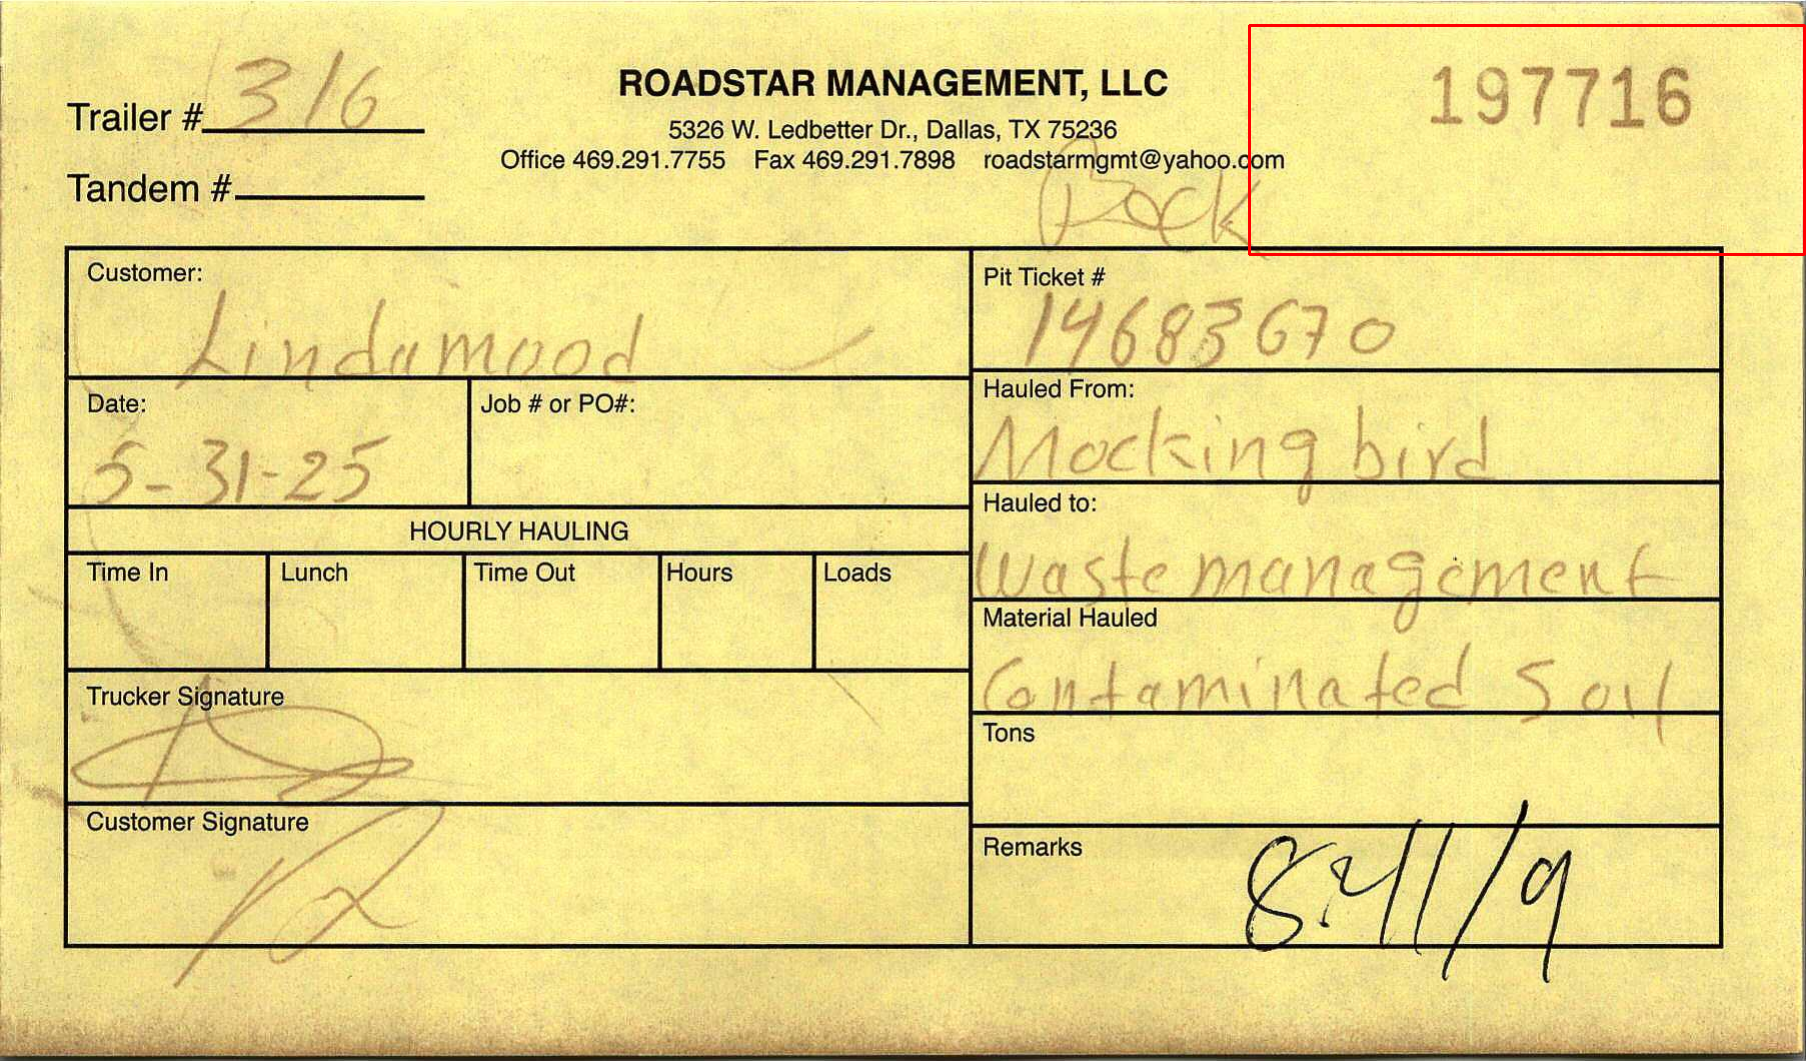 Trailer # 316
Tandem #
ROADSTAR MANAGEMENT, LLC
5326 W. Ledbetter Dr., Dallas, TX 75236
Office 469.291.7755 Fax 469.291.7898 roadstarmgmt@yahoo.com
197716
Rock
Customer:
Lindamood
Date:
5-31-25
Job # or PO#:
HOURLY HAULING
Time In Lunch Time Out Hours Loads
Trucker Signature
Customer Signature
Pit Ticket #
14683670
Hauled From:
Mockingbird
Hauled to:
Waste management
Material Hauled
Contaminated Soil
Tons
Remarks
8:41/9